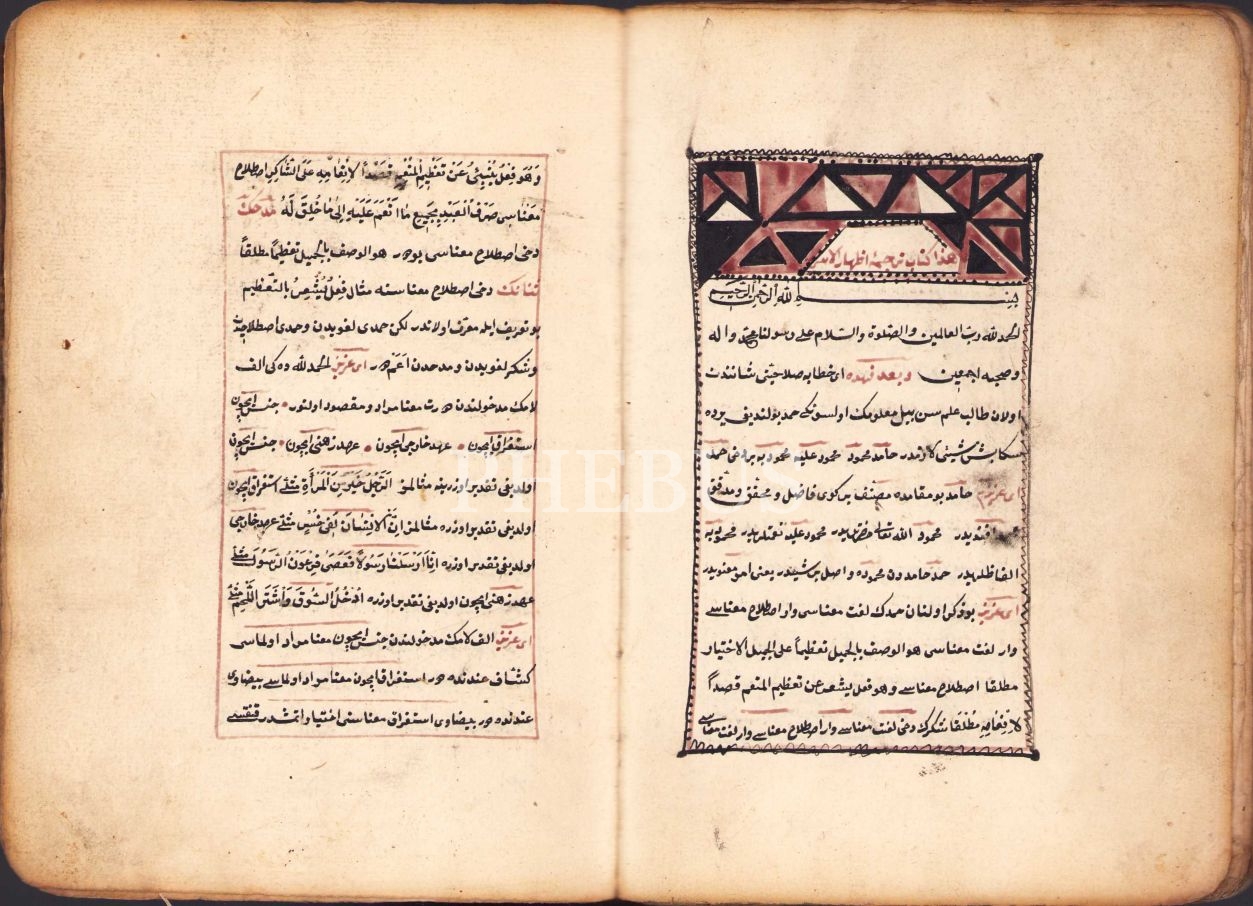 هذا كتاب ترجمۀ اظهار الاسرار
بسم الله الرحمن الرحيم
الحمد لله رب العالمين والصلوة والسلام على رسولنا محمد واله
وصحبه اجمعين وبعد فهده اى خطابه صلاحيتى شانندن
اولان طالب علم سن بيل معلومك اولسونكه حمد بولنديغى يرده
بش شئى لازمدر حامد محمود محمود عليه محمود به بر دخى حمد
اى عزيزم حامد بو مقامده مصنف بركوى فاضل ومحقق ومدقق
افنديدر محمود الله تعالى حضرتلريدر محمود عليه نعمتلريدر محمود به
الفاظلريدر حمد حامددن محموده واصل بر شيدر يعنى امر معنويدر
اى عزيز بو ذكر اولنان حمدك لغت معناسى وار اصطلاح معناسى
وار لغت معناسى هو الوصف بالجميل تعظيماً على الجميل الاختيار
مطلقا اصطلاح معناسى وهو فعل يشعر عن تعظيم المنعم قصداً
لانعامه مطلقا شكرك دخى لغت معناسى وار اصطلاح معناسى وار لغت معناسى
وهو فعل ينبئ عن تعظيم المنعم قصداً لانعامه على الشاكر اصطلاح
معناسى صرف العبد بجميع ما انعم عليه الى ما خلق له مدحك
دخى اصطلاح معناسى بودر هو الوصف بالجميل تعظيماً مطلقاً
ثنانك دخى اصطلاح معناسنه مثال فعل يشعر بالتعظيم
بو تعريف ايله معرف اولاندر لكن حمدى لغويدن وحمدى اصطلاحيدن
وشكر لغويدن ومدحدن اعم در اى عزيز الحمد لله ده كى الف
لامك مدخولندن درت معنا مراد ومقصود اولنور جنس ايچون
استغراق ايچون عهد خارجى ايچون عهد ذهنى ايچون جنس ايچون
اولديغى تقدير اوزرينه مثالمز الرجل خير من المرأة مثلى استغراق ايچون
اولديغى تقدير اوزره مثالمز ان الانسان لفى خسر مثلى عهد خارجى
اولديغى تقدير اوزره انا ارسلنا رسولا فعصى فرعون الرسول مثلى
عهد ذهنى ايچون اولديغى تقدير اوزره ادخل السوق واشتر اللحم مثلى
اى عزيز الف لامك مدخولندن جنس ايچون معنا مراد اولماسى
كشاف عندنده در استغراق ايچون معنا مراد اولماسى بيضاوى
عندنده در بيضاوى استغراق معناسنى اختيار ايتمشدر قنغيسى
PHEBUS